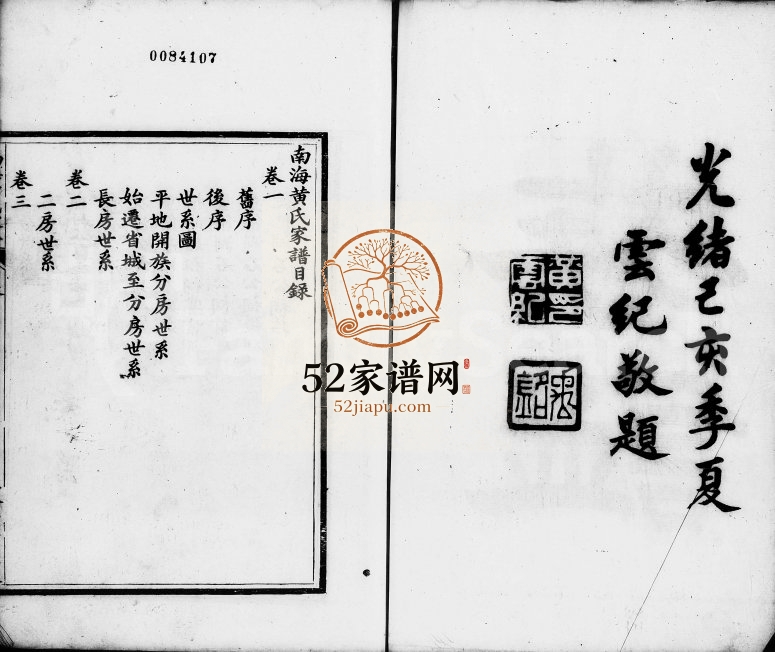 光緒己亥季夏
雲紀敬題
0084107
南海黄氏家譜目録
卷一
舊序
後序
世系圖
平地開族分房世系
始遷省城至分房世系
長房世系
卷二
二房世系
卷三
52家谱网
52jiapu.com